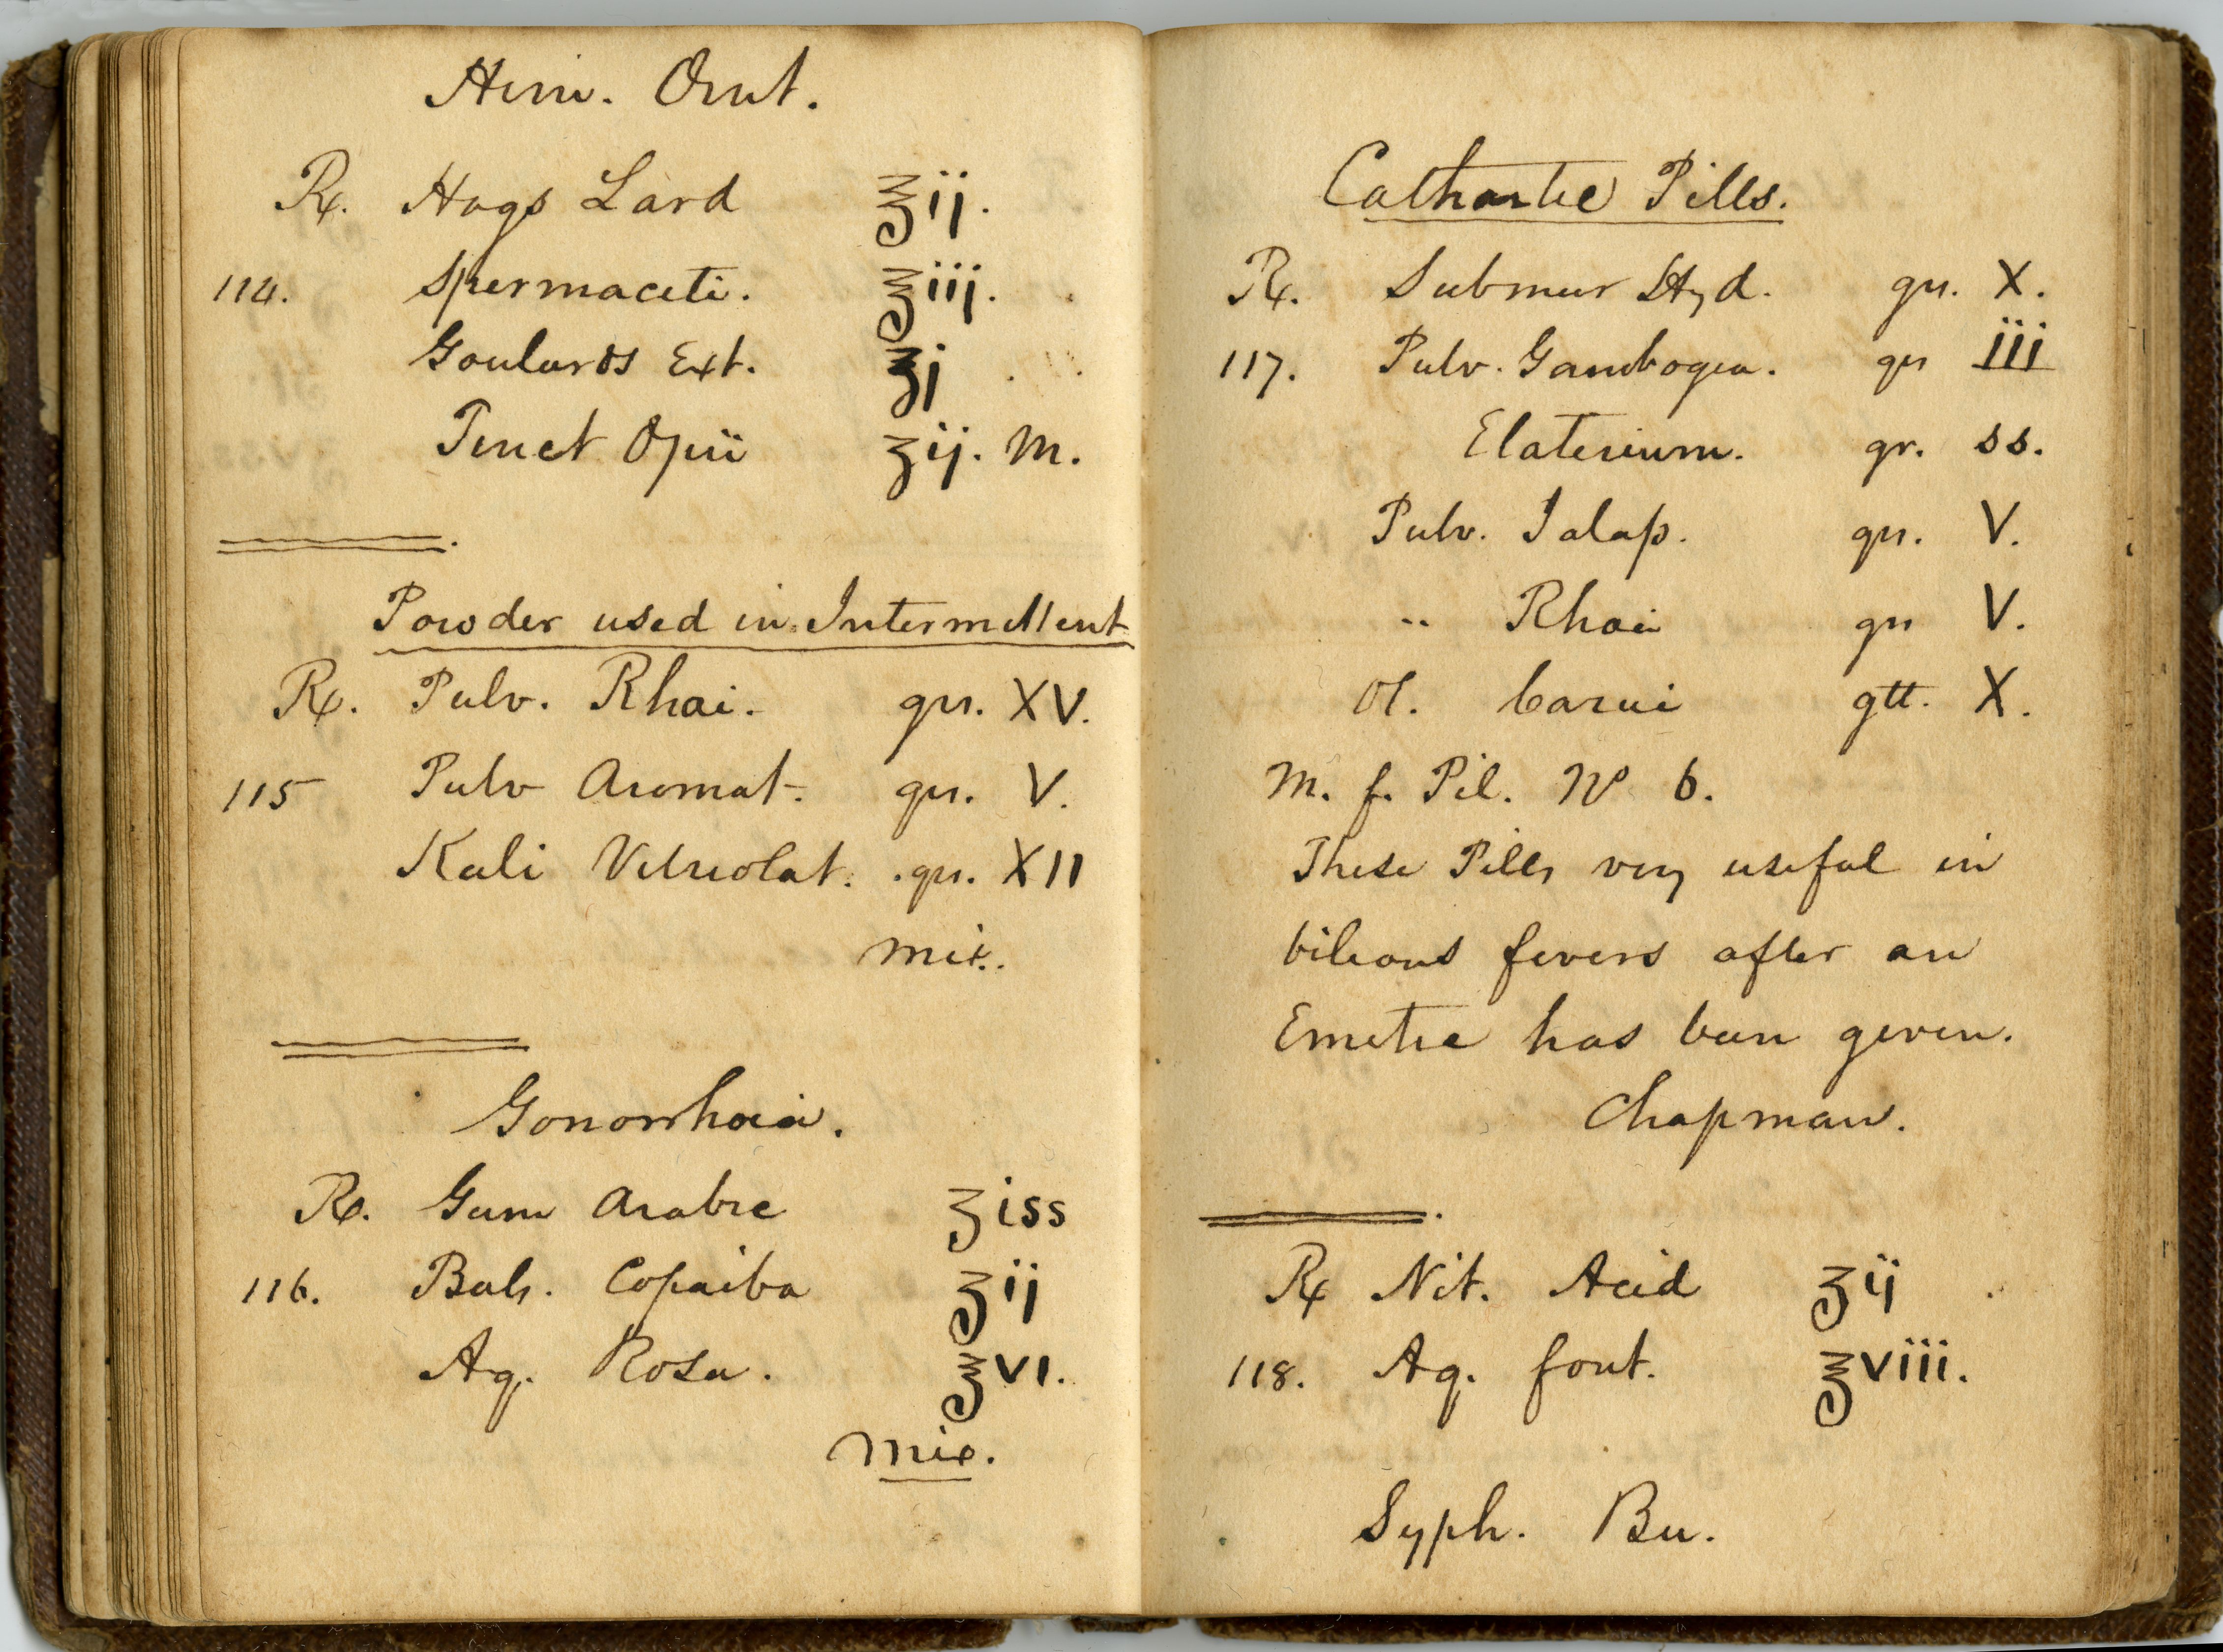 Hem. Oint.
℞. Hogs Lard ℥ij.
114. Spermaceti. ℥iij.
Goulards Ext. ʒj
Tinct Opii ʒij. M.
Powder used in Intermittent
℞. Pulv. Rhai. grs. XV.
115 Pulv Aromat. grs. V.
Kali Vitriolat. grs. XII
mix.
Gonorrhoia.
℞. Gum Arabic ʒiss
116. Bals. Copaiba ʒij
Aq. Rosa. ℥VI.
mix.
Cathartic Pills.
℞. Submur Hyd. grs. X.
117. Pulv. Gambogia. grs iii
Elaterium. gr. ss.
Pulv. Jalap. grs. V.
" Rhai grs V.
Ol. Carui gtt. X.
M. f. Pil. No 6.
These Pills very useful in
bilious fevers after an
Emetic has been given.
Chapman.
℞ Nit. Acid ʒij
118. Aq. font. ℥viii.
Syph. Bu.